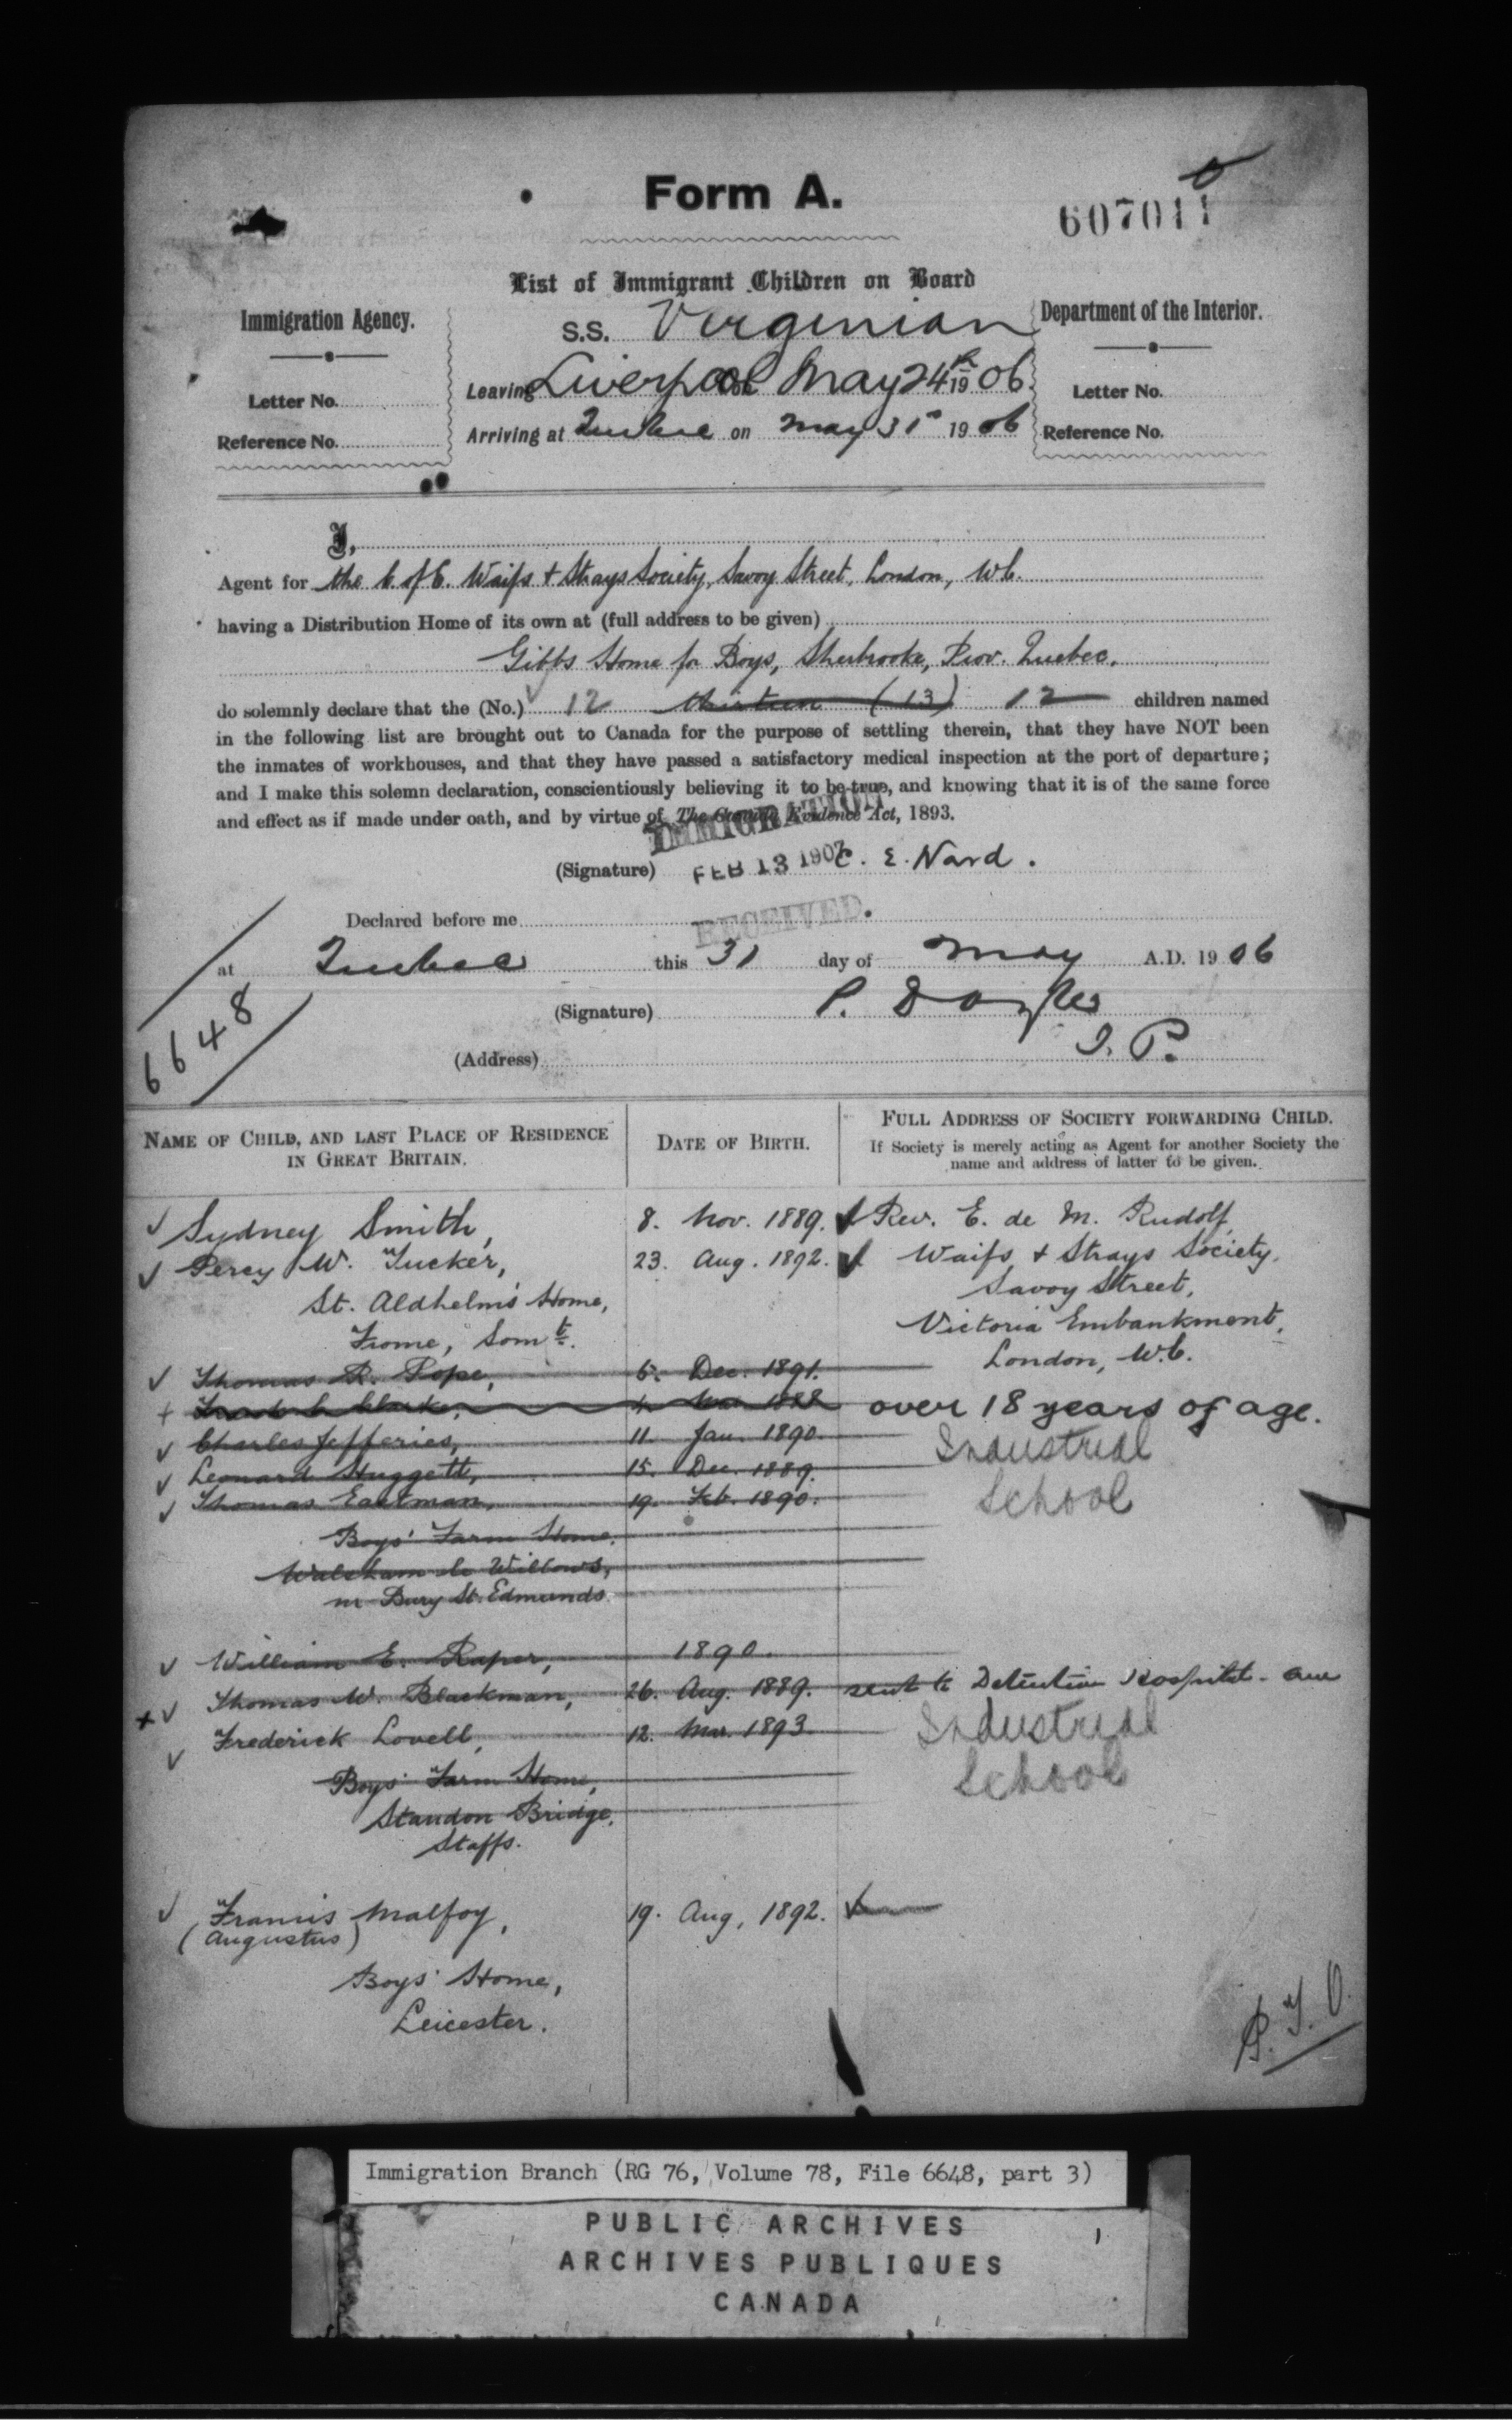 Form A.
607011
List of Immigrant Children on Board
Immigration Agency.
S.S. Virginian
Department of the Interior.
Letter No.
Leaving Liverpool on May 24th 1906
Letter No.
Reference No.
Arriving at Quebec on May 31st 1906
Reference No.
I,
Agent for the C. of E. Waifs & Strays Society, Savoy Street, London, W.C.
having a Distribution Home of its own at (full address to be given)
Gibbs Home for Boys, Sherbrooke, Prov. Quebec.
do solemnly declare that the (No.) 12 thirteen (13) 12 children named
in the following list are brought out to Canada for the purpose of settling therein, that they have NOT been
the inmates of workhouses, and that they have passed a satisfactory medical inspection at the port of departure;
and I make this solemn declaration, conscientiously believing it to be true, and knowing that it is of the same force
and effect as if made under oath, and by virtue of The Canada Evidence Act, 1893.
IMMIGRATION
(Signature) C. E. Nard.
FEB 13 1907
RECEIVED
Declared before me
at Quebec this 31 day of May A.D. 1906
6648
(Signature) P. Doyle
J. P.
(Address)
NAME OF CHILD, AND LAST PLACE OF RESIDENCE
IN GREAT BRITAIN.
DATE OF BIRTH.
FULL ADDRESS OF SOCIETY FORWARDING CHILD.
If Society is merely acting as Agent for another Society the
name and address of latter to be given.
Sydney Smith, 8. Nov. 1889. Rev. E. de M. Rudolf,
Percy W. Tucker, 23. Aug. 1892. Waifs & Strays Society,
St. Aldhelm's Home, Savoy Street,
Frome, Somt. Victoria Embankment,
London, W.C.
Thomas R. Pope, 5. Dec. 1891.
Clarke, 4. 1888 over 18 years of age.
Charles Jefferies, 11. Jan. 1890. Industrial
Leonard Huggett, 15. Dec. 1889.
Thomas Eastman, 19. Feb. 1890. School
Boys' Farm Home,
Walsham le Willows,
nr Bury St. Edmunds.
William E. Raper, 1890.
Thomas W. Blackman, 26. Aug. 1889. sent to Detention Hospital
Frederick Lovell, 12. Mar. 1893. Industrial
School
Boys' Farm Home,
Standon Bridge,
Staffs.
Francis Malfoy, 19. Aug, 1892.
(Augustus)
Boys' Home,
Leicester.
P.T.O.
Immigration Branch (RG 76, Volume 78, File 6648, part 3)
PUBLIC ARCHIVES
ARCHIVES PUBLIQUES
CANADA